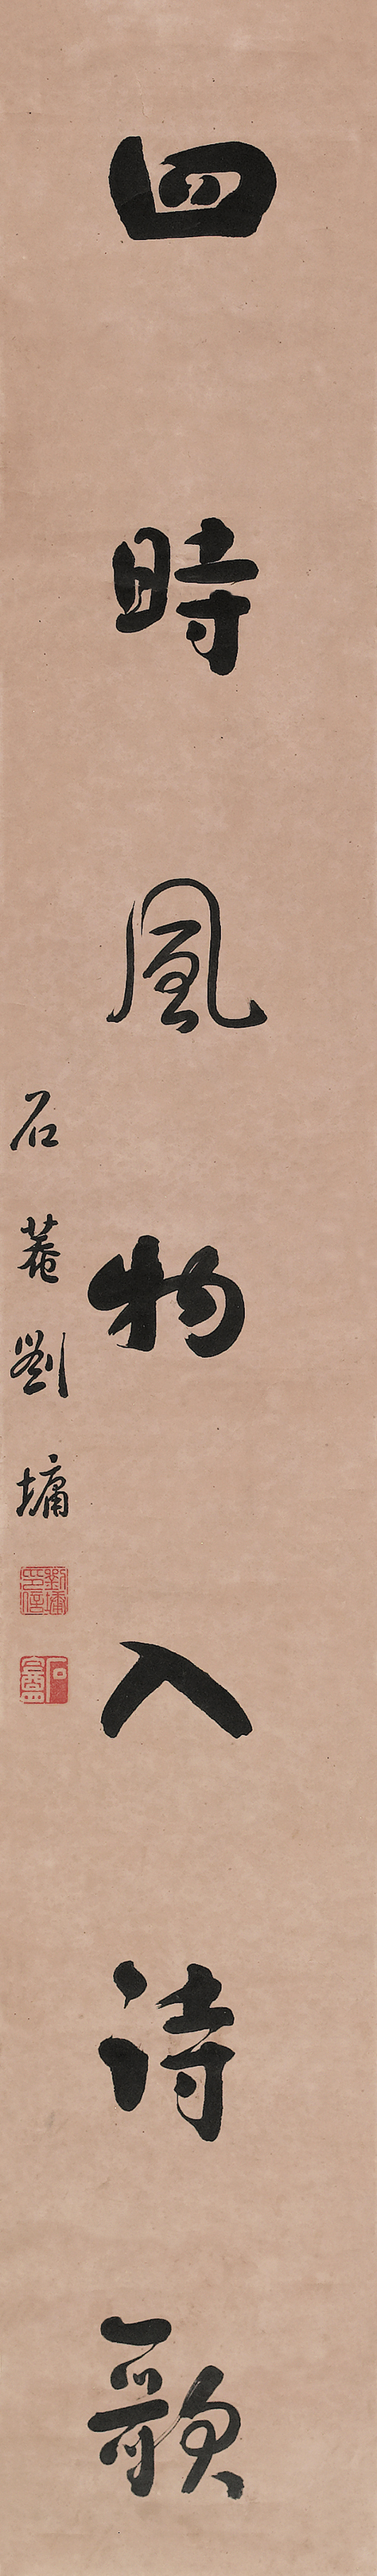 四時風物入詩歌
石菴劉墉
劉墉印信
石盦